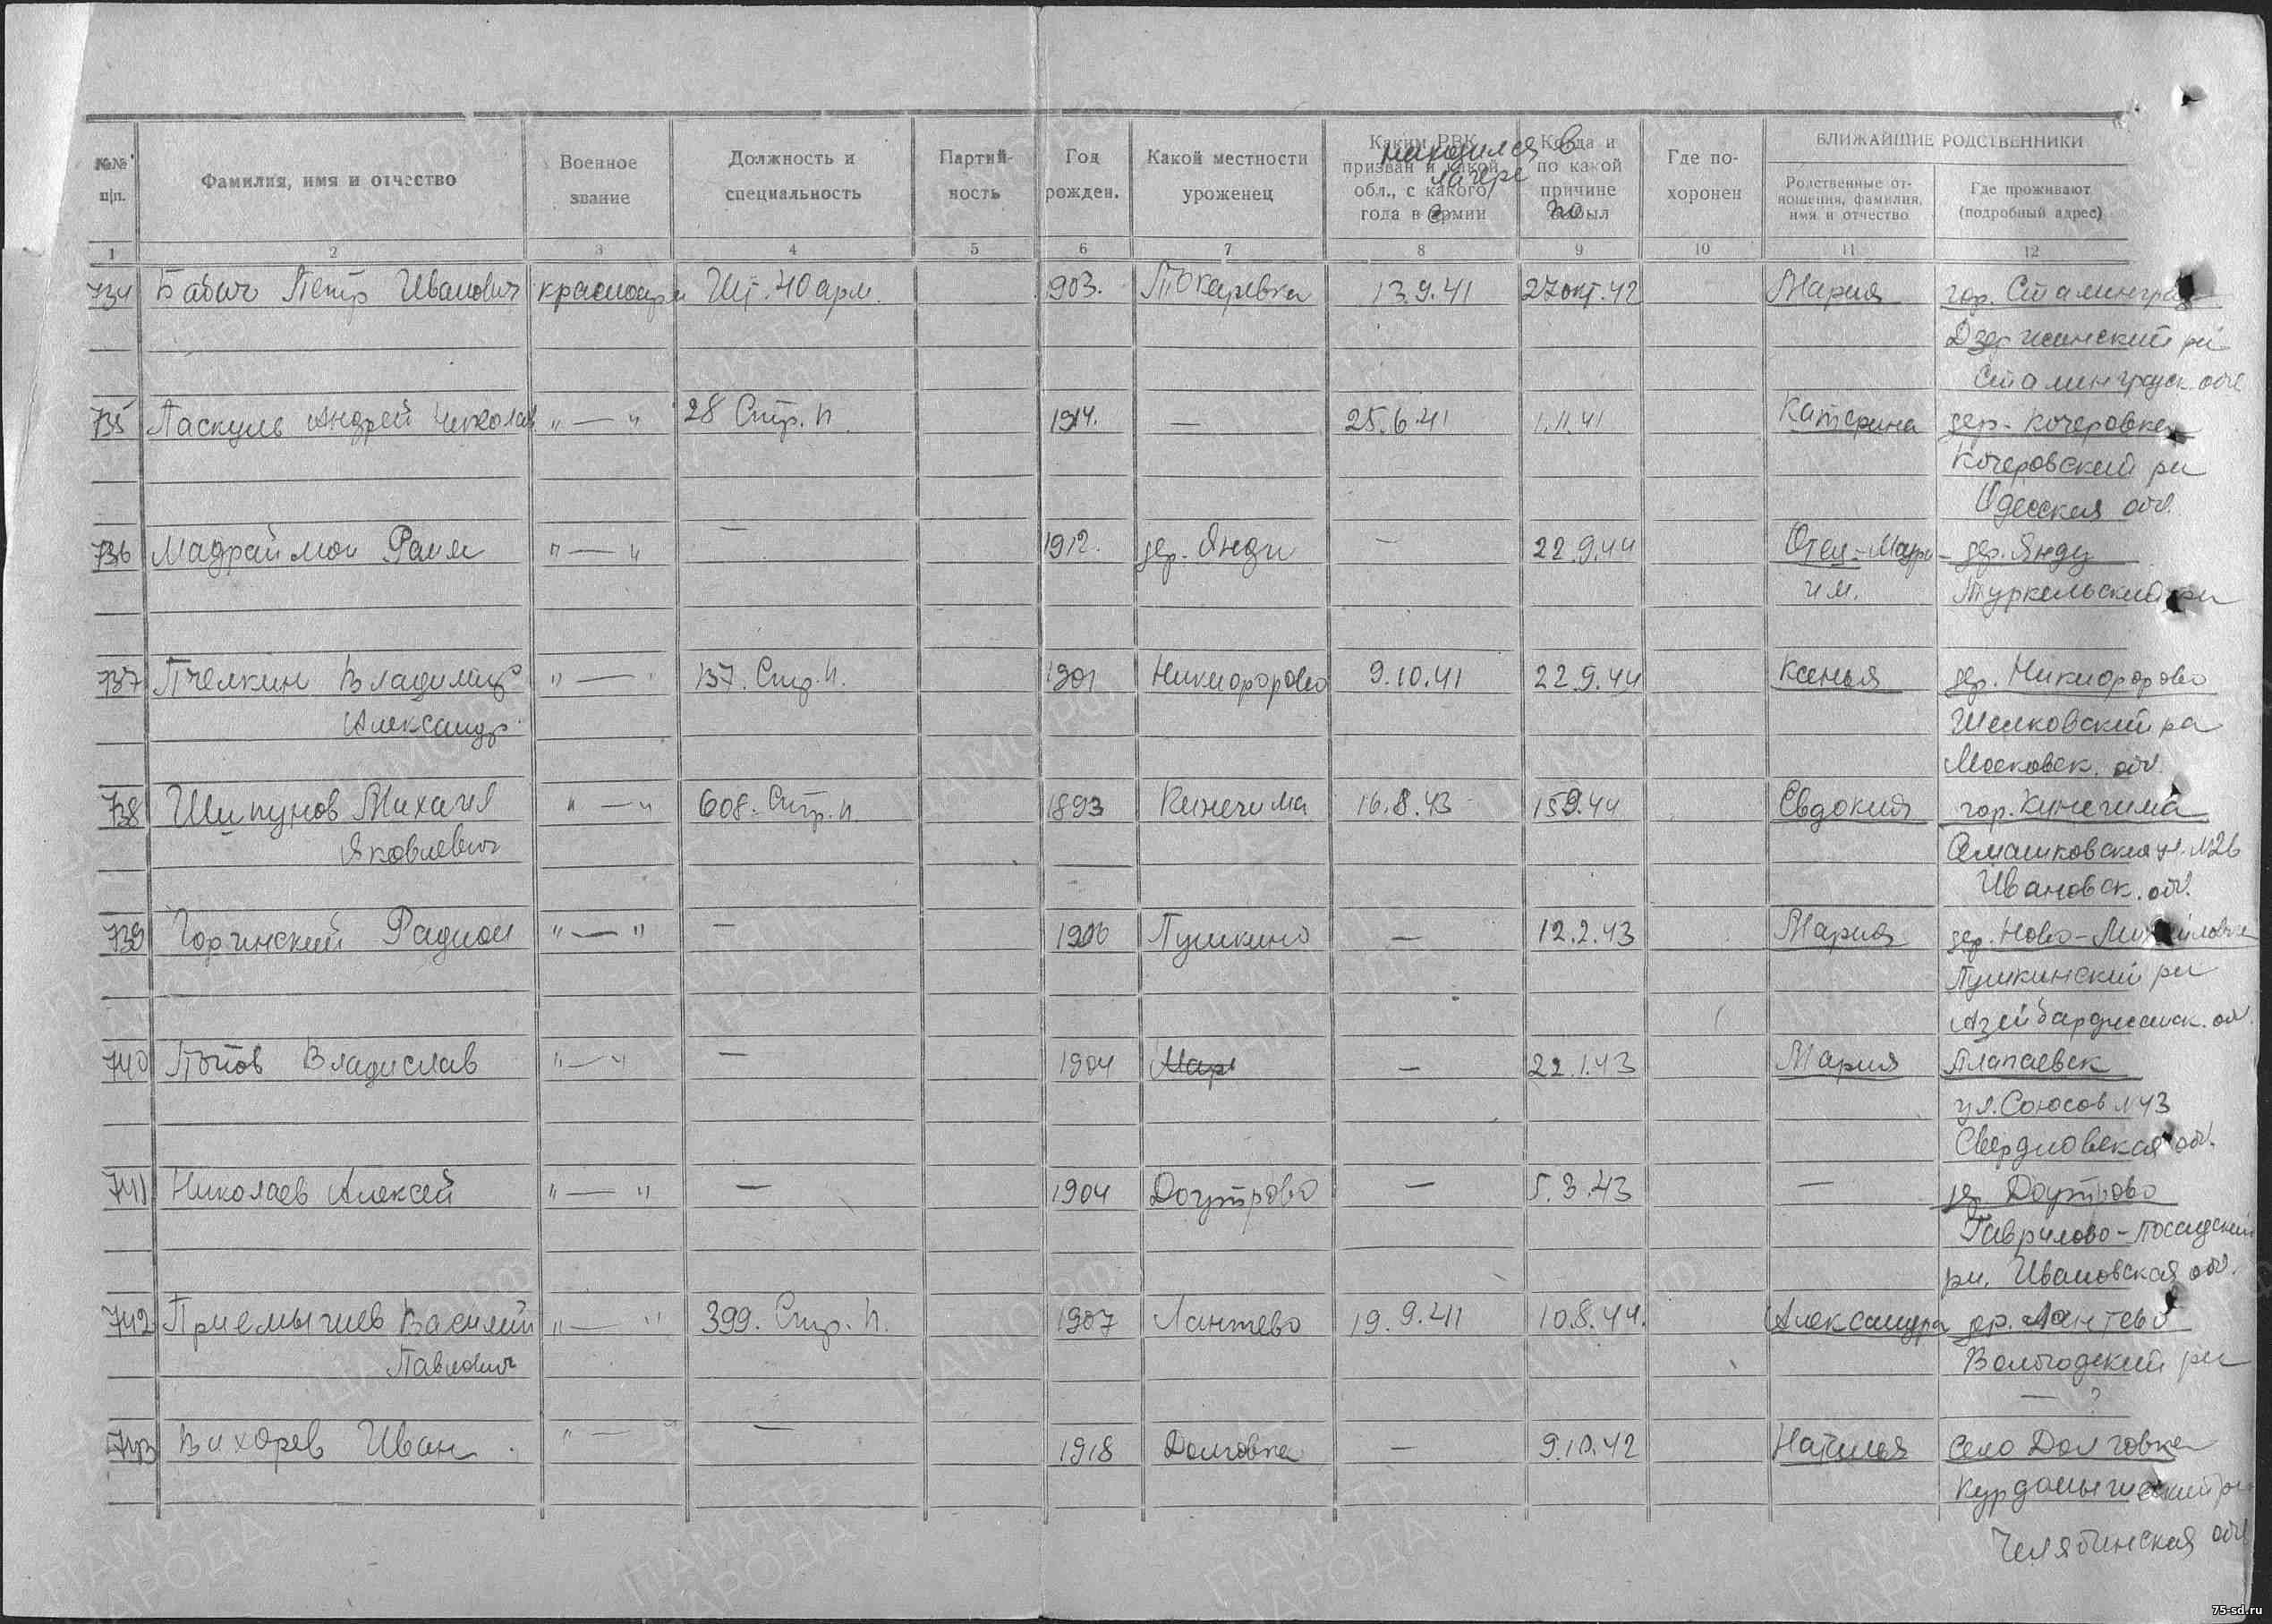 №№ п/п.
Фамилия, имя и отчество
Военное звание
Должность и специальность
Партий-ность
Год рожден.
Какой местности уроженец
Каким РВК призван и какой обл., с какого года в армии
находился в лагере
с
Когда и по какой причине выбыл
по
Где по-хоронен
БЛИЖАЙШИЕ РОДСТВЕННИКИ
Родственные от-ношения, фамилия, имя и отчество
Где проживают (подробный адрес)
1 2 3 4 5 6 7 8 9 10 11 12
734 Бабич Петр Иванович красноарм Шт. 40 арм. 903. Токаревка 13.9.41 27 окт. 42 Мария гор. Сталинград
Дзержинский р-н
Сталинградск. обл
735 Паскуль Андрей Николаев " — " 28 Стр. п. 1914. — 25.6.41 1.11.41 Катерина дер. Кочеровка
Кочеровский р-н
Одесская обл.
736 Мадраймон Раим " — " — 1912. дер. Янди — 22.9.44 Отец - дер. Янду
им.
737 Пчелкин Владимир " — " 137. Стр. п. 1901 Никифорово 9.10.41 22.9.44 Ксенья дер. Никифорово
Александр. Щелковский р-н
Московск. обл.
738 Шипунов Михаил " — " 608. Стр. п. 1893 Кинечима 16.8.43 15.9.44 Евдокия гор. Кинечима
Яковлевич ул. №26
Ивановск. обл.
739 Горинский Радион " — " — 1906 Пушкино — 12.2.43 Мария дер. Ново-Михайловка
Пушкинский р-н
Азейбарджанск. обл.
740 Попов Владислав " — " — 1904 Мар — 22.1.43 Мария Алапаевск
ул. Союсов №43
Свердловская обл.
741 Николаев Алексей " — " — 1904 Доутрово — 5.3.43 — д. Доутрово
Гаврилово-Посадский
р-н. Ивановская обл.
742 Приемышев Василий " — " 399. Стр. п. 1907 Лантево 19.9.41 10.8.44. Александра дер. Лантево
Павлович Вологодский р-н
— ?
743 Вихорев Иван " — " — 1918 Долговка — 9.10.42 Наталья Село Долговка
Челябинская обл
ПАМЯТЬ НАРОДА
ЦАМО РФ
75-sd.ru